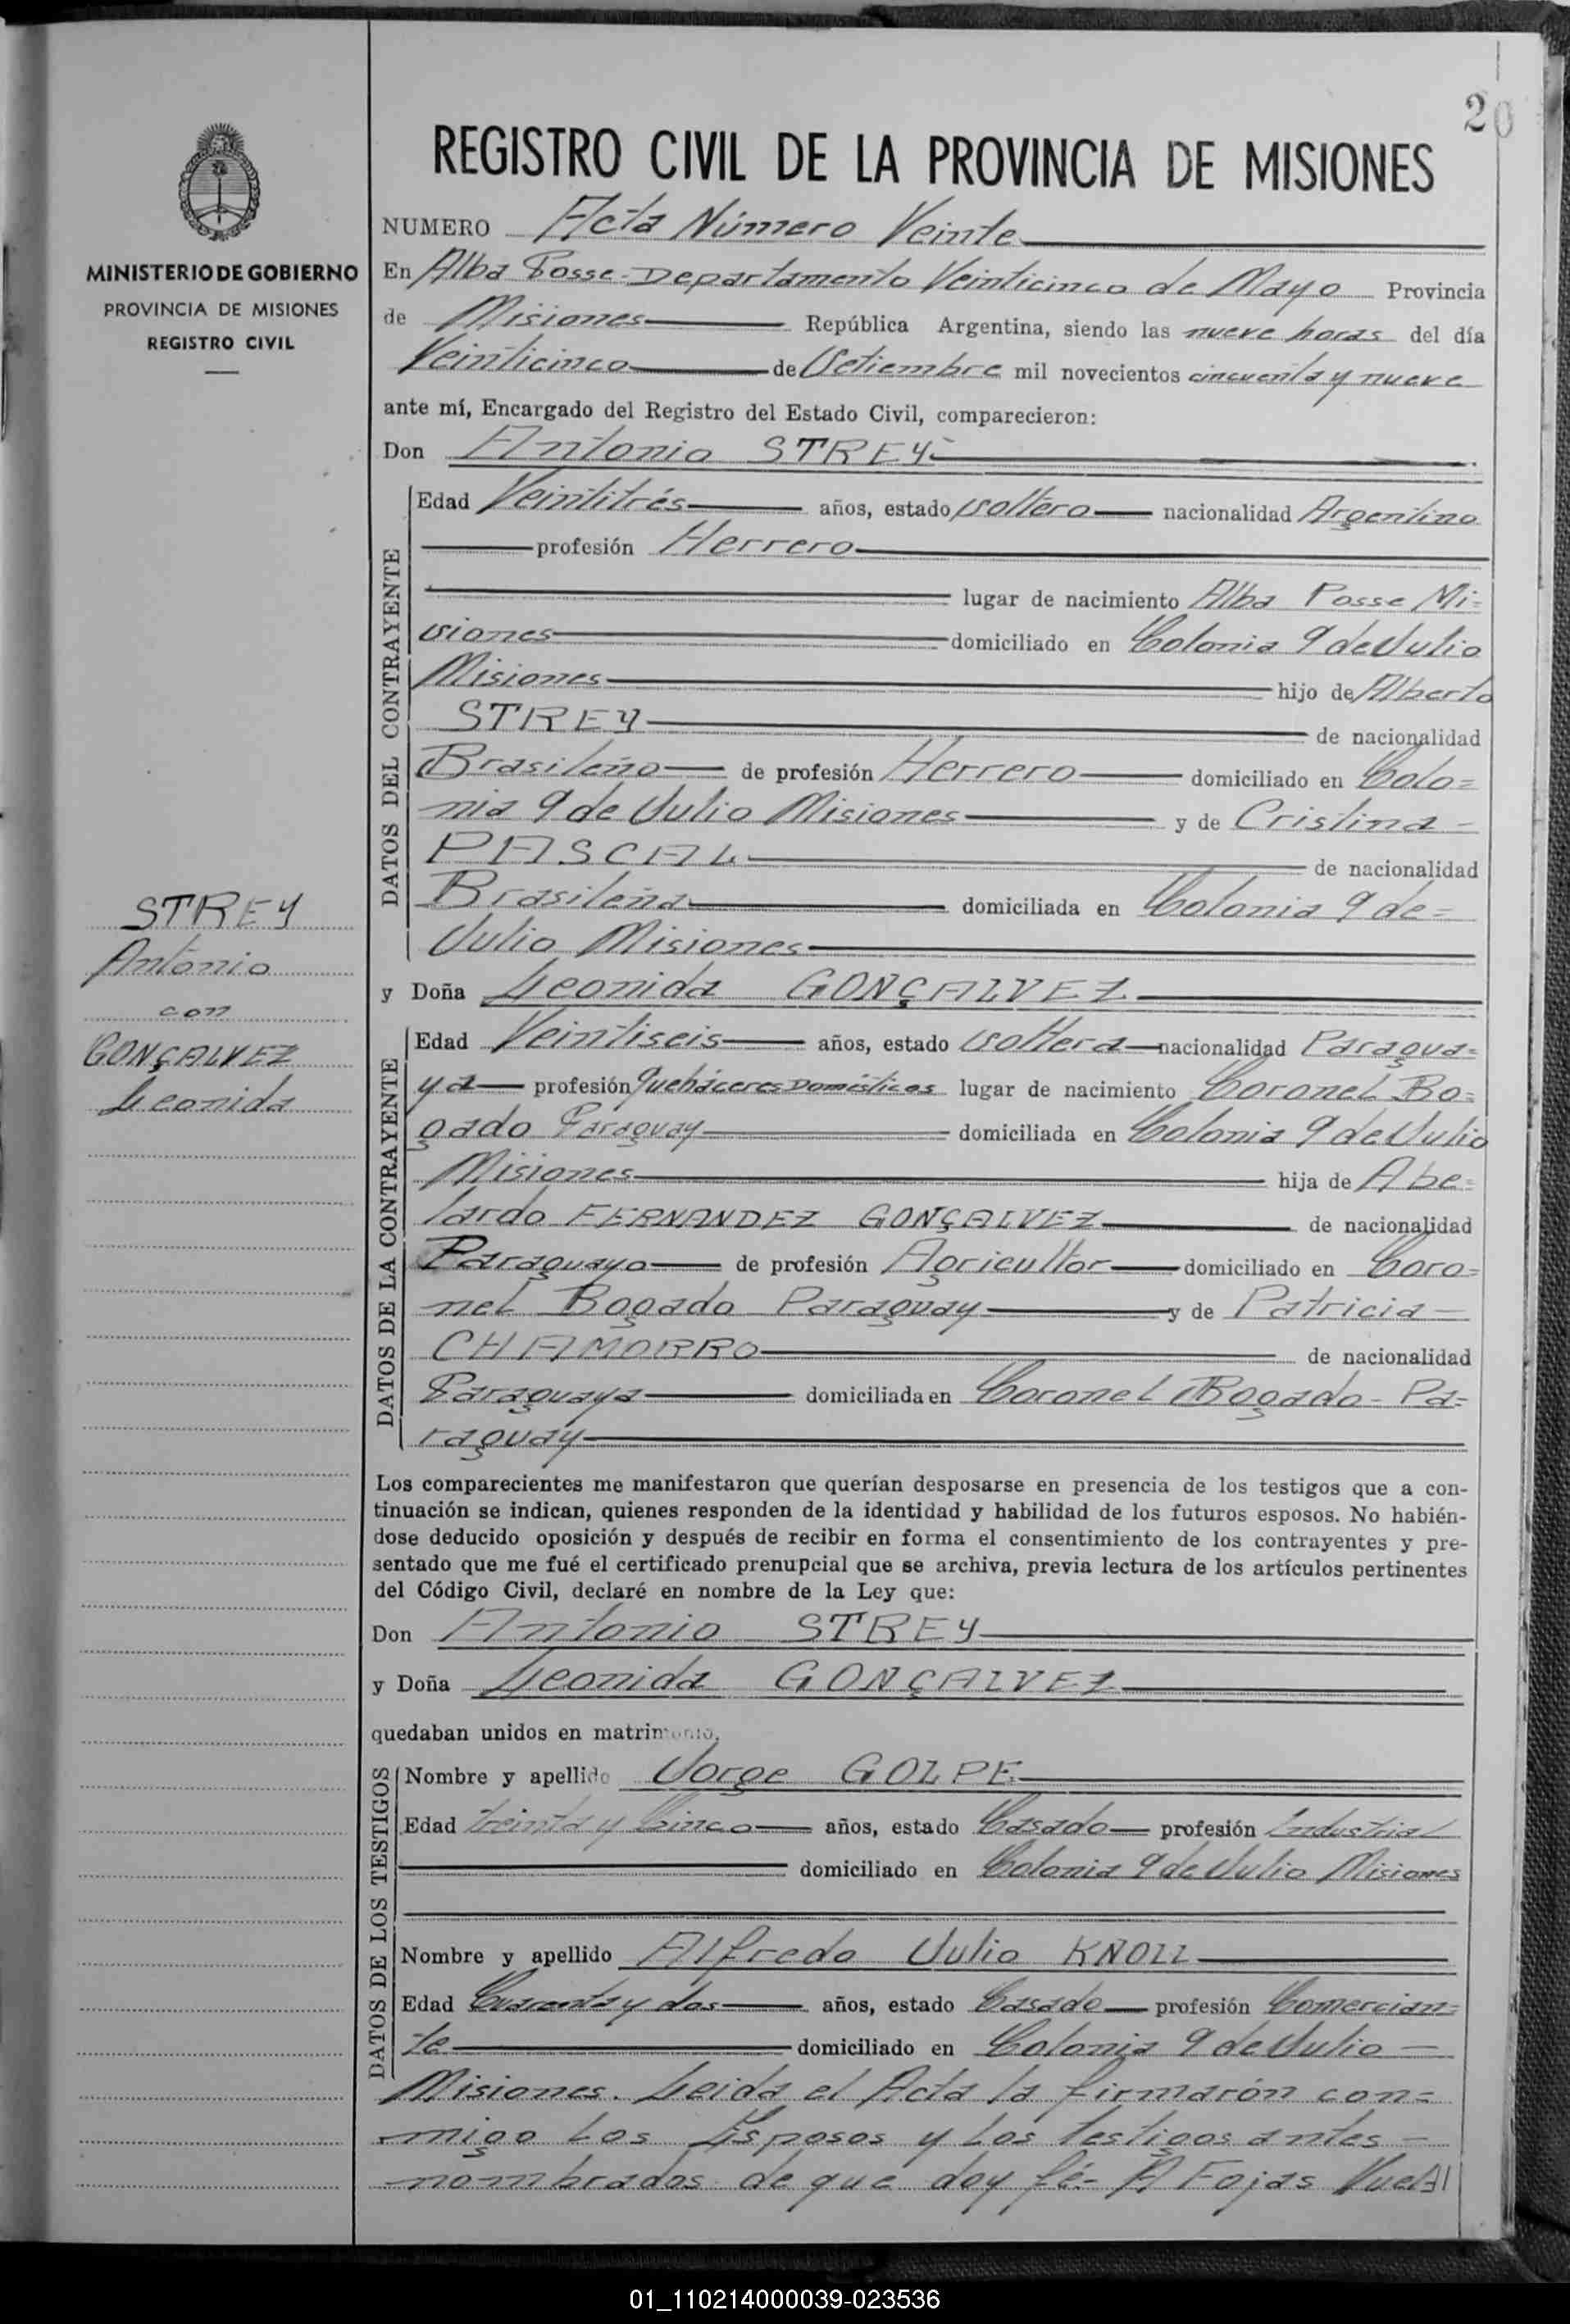 20
REGISTRO CIVIL DE LA PROVINCIA DE MISIONES
MINISTERIO DE GOBIERNO
PROVINCIA DE MISIONES
REGISTRO CIVIL
NUMERO Acta Número Veinte
En Alba Posse-Departamento Veinticinco de Mayo Provincia
de Misiones República Argentina, siendo las nueve horas del día
Veinticinco de Setiembre mil novecientos cincuenta y nueve
ante mí, Encargado del Registro del Estado Civil, comparecieron:
Don Antonio STREY
DATOS DEL CONTRAYENTE
Edad Veintitrés años, estado soltero nacionalidad Argentino
profesión Herrero
lugar de nacimiento Alba Posse Mi=
siones domiciliado en Colonia 9 de Julio
Misiones hijo de Alberto
STREY de nacionalidad
Brasileño de profesión Herrero domiciliado en Colo=
nia 9 de Julio Misiones y de Cristina -
PASCAL de nacionalidad
Brasileña domiciliada en Colonia 9 de=
Julio Misiones
y Doña Leonida GONÇALVEZ
STREY
Antonio
con
GONÇALVEZ
Leonida
DATOS DE LA CONTRAYENTE
Edad Veintiseis años, estado soltera nacionalidad Paragua=
ya profesión Queháceres Domésticos lugar de nacimiento Coronel Bo=
gado Paraguay domiciliada en Colonia 9 de Julio
Misiones hija de Abe=
lardo FERNANDEZ GONÇALVEZ de nacionalidad
Paraguayo de profesión Agricultor domiciliado en Coro=
nel Bogado Paraguay y de Patricia -
CHAMORRO de nacionalidad
Paraguaya domiciliada en Coronel Bogado- Pa=
raguay
Los comparecientes me manifestaron que querían desposarse en presencia de los testigos que a con-
tinuación se indican, quienes responden de la identidad y habilidad de los futuros esposos. No habién-
dose deducido oposición y después de recibir en forma el consentimiento de los contrayentes y pre-
sentado que me fué el certificado prenupcial que se archiva, previa lectura de los artículos pertinentes
del Código Civil, declaré en nombre de la Ley que:
Don Antonio STREY
y Doña Leonida GONÇALVEZ
quedaban unidos en matrimonio.
DATOS DE LOS TESTIGOS
Nombre y apellido Jorge GOLPE
Edad treinta y Cinco años, estado Casado profesión Industrial
domiciliado en Colonia 9 de Julio Misiones
Nombre y apellido Alfredo Julio KNOLL
Edad Cuarenta y dos años, estado Casado profesión Comercian=
te domiciliado en Colonia 9 de Julio -
Misiones. Leida el Acta la firmarón con=
migo Los Esposos y Los Testigos antes -
nombrados de que doy fé- A Fojas Vuelta
01_110214000039-023536